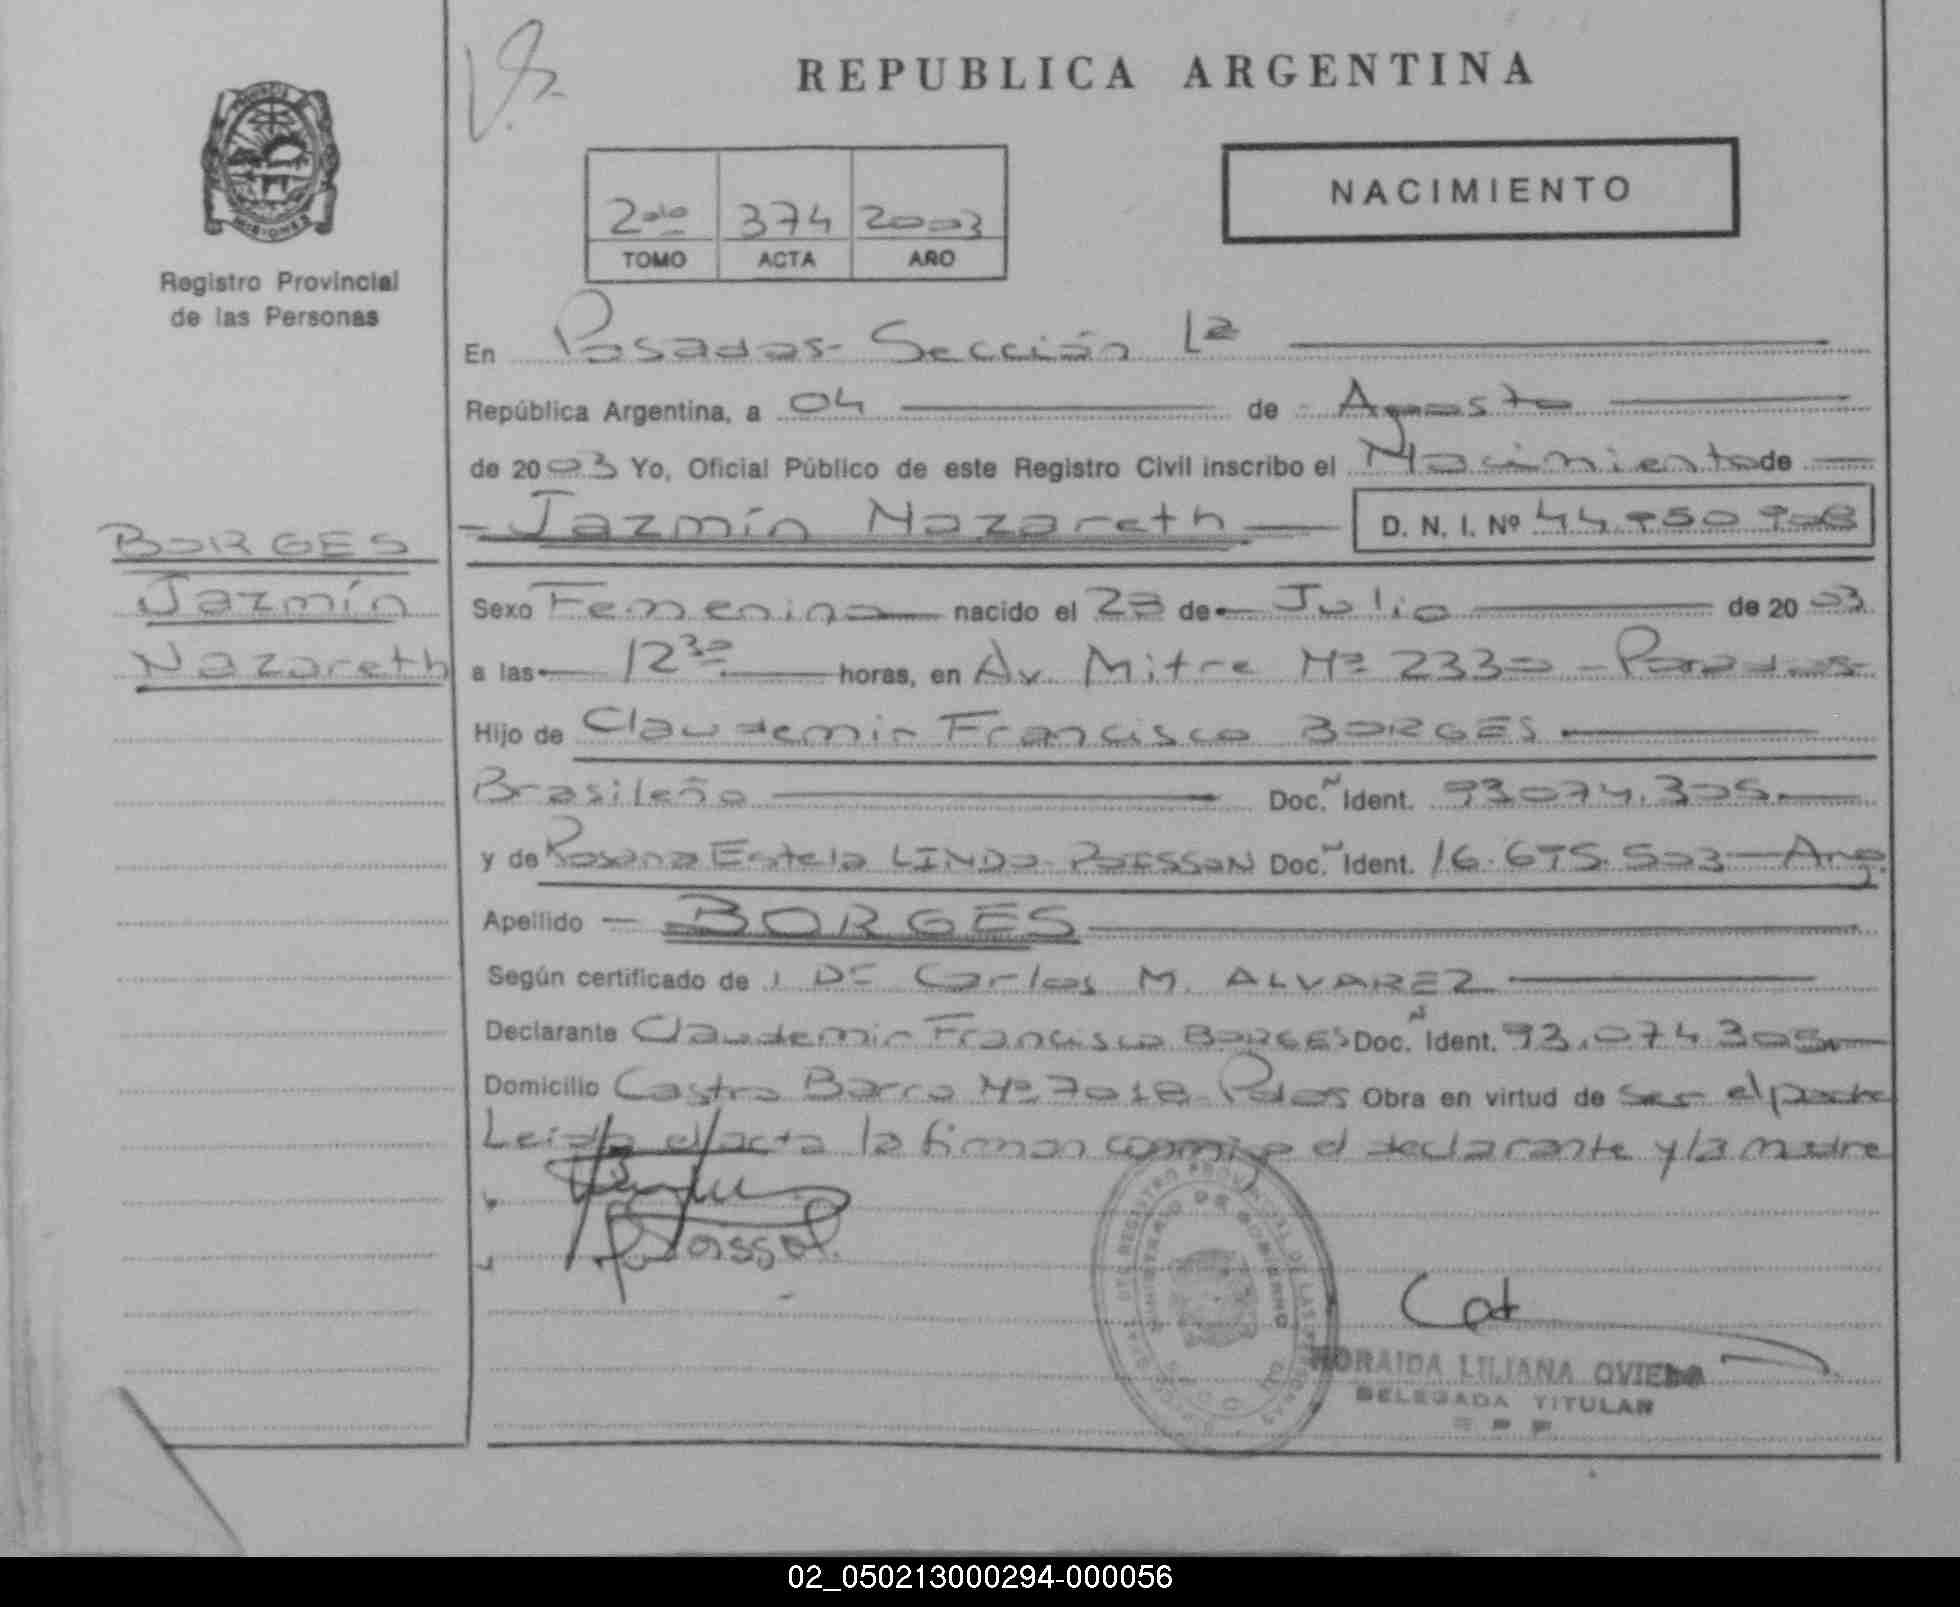 REPUBLICA ARGENTINA
PROVINCIA
MISIONES
Registro Provincial
de las Personas
2do 374 2003
TOMO ACTA AÑO
NACIMIENTO
En Posadas - Sección 1a
República Argentina, a 04 de Agosto
de 2003 Yo, Oficial Público de este Registro Civil inscribo el Nacimiento de
Jazmín Nazareth D. N. I. Nº
BORGES
Jazmín
Nazareth
Sexo Femenino nacido el de Julio de 2003
a las 12 30 horas, en Av. Mitre Nº 2330 - Posadas
Hijo de Claudemir Francisco BORGES
Brasileño Doc. Ident. 93.074.305
y de Rosana Estela Doc. Ident. 16.675.503 - Arg.
Apellido BORGES
Según certificado de Carlos M. ALVAREZ
Declarante Claudemir Francisco BORGES Doc. Ident. 93.074.305
Domicilio Castro Barro Nº 7018 - Pdas Obra en virtud de ser el padre
Leída el acta la firman conmigo el declarante y la madre
REGISTRO PROVINCIAL DE LAS PERSONAS
MINISTERIO DE GOBIERNO
LILIANA OVIEDO
DELEGADA TITULAR
02_050213000294-000056